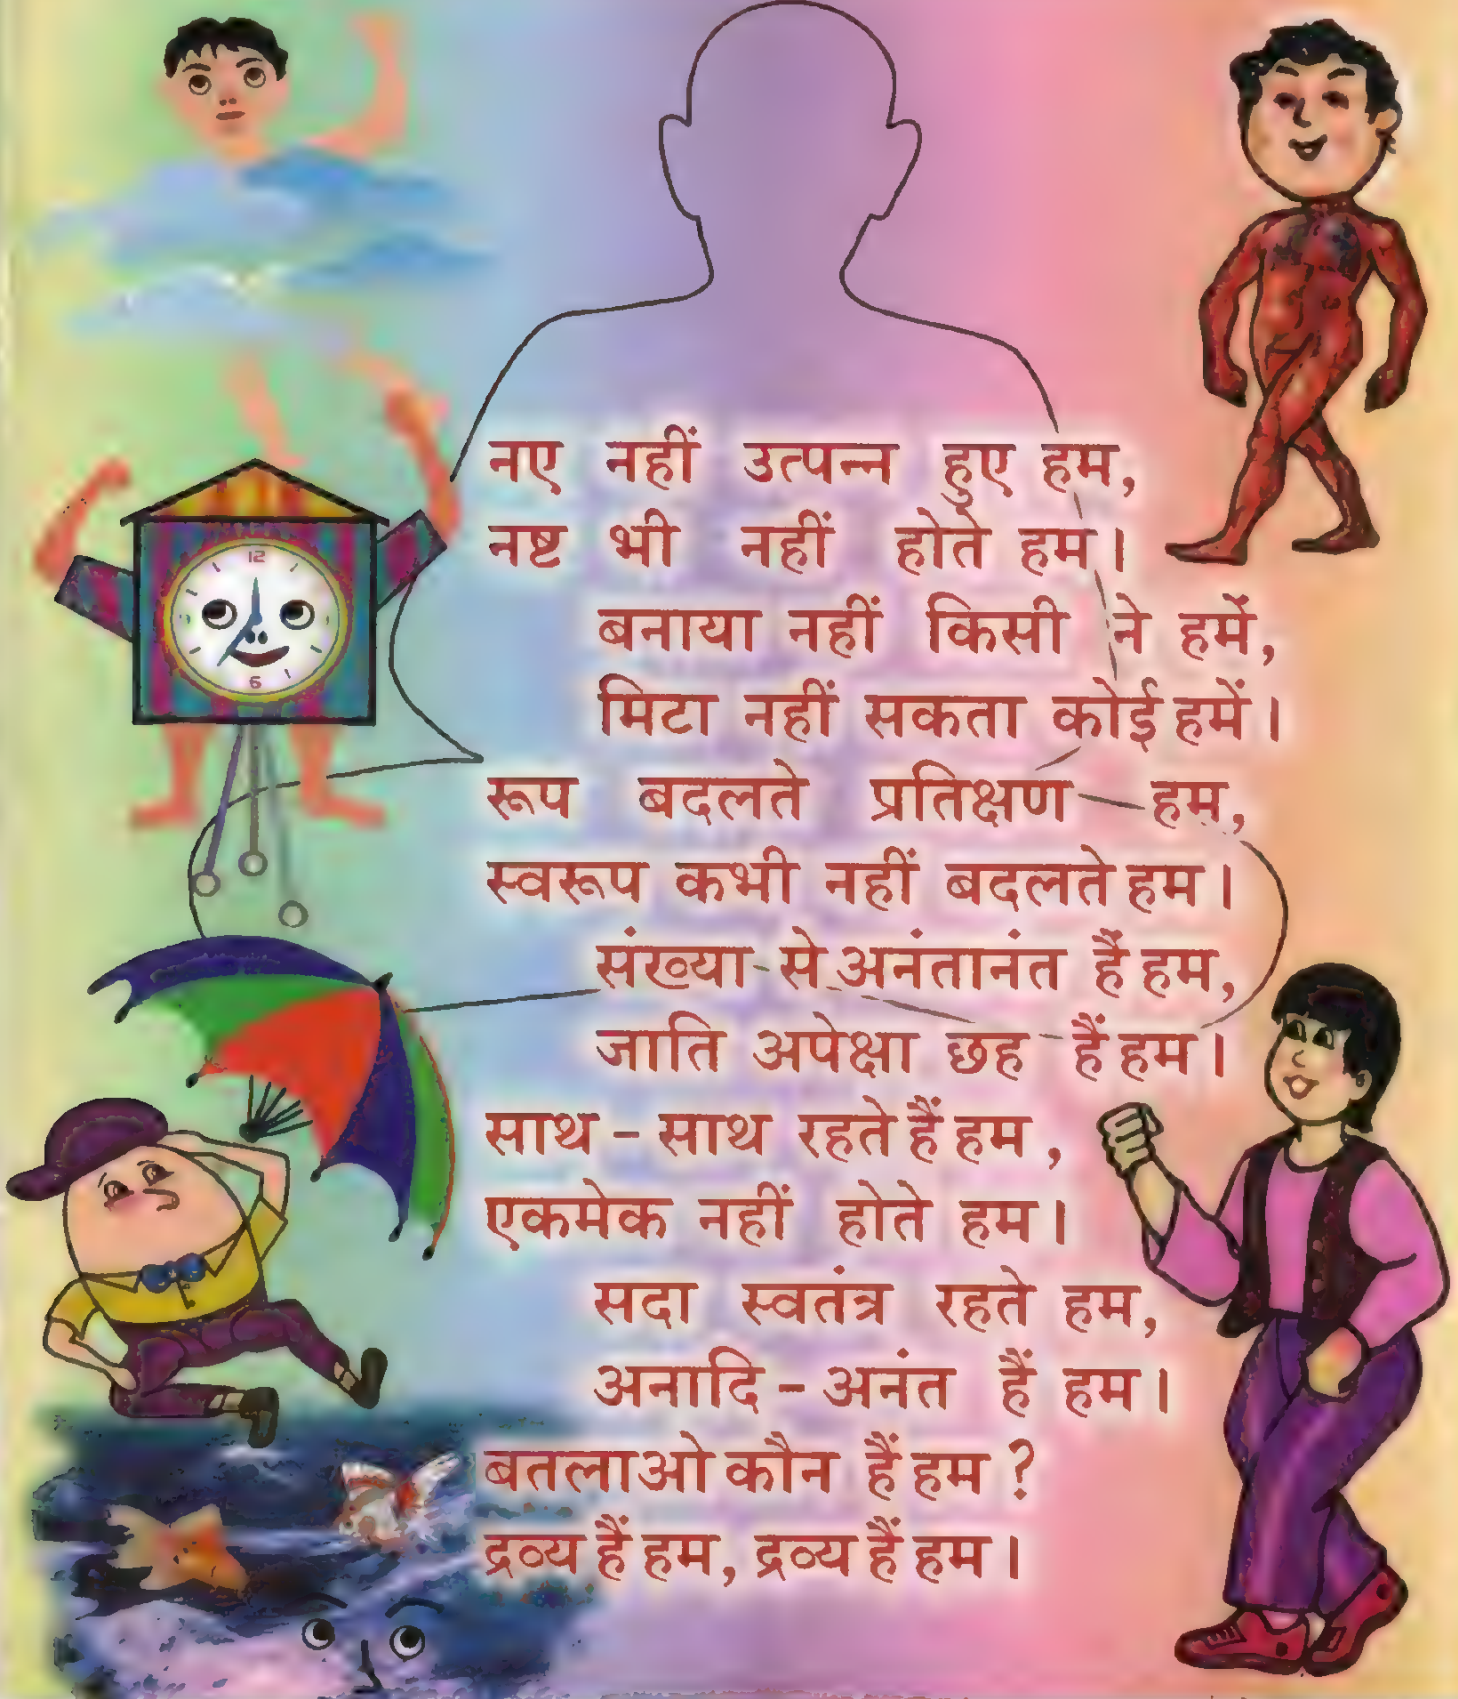 नए नहीं उत्पन्न हुए हम,
नष्ट भी नहीं होते हम।
बनाया नहीं किसी ने हमें,
मिटा नहीं सकता कोई हमें।
रूप बदलते प्रतिक्षण हम,
स्वरूप कभी नहीं बदलते हम।
संख्या से अनंतानंत हैं हम,
जाति अपेक्षा छह हैं हम।
साथ - साथ रहते हैं हम,
एकमेक नहीं होते हम।
सदा स्वतंत्र रहते हम,
अनादि - अनंत हैं हम।
बतलाओ कौन हैं हम ?
द्रव्य हैं हम, द्रव्य हैं हम।
12
6